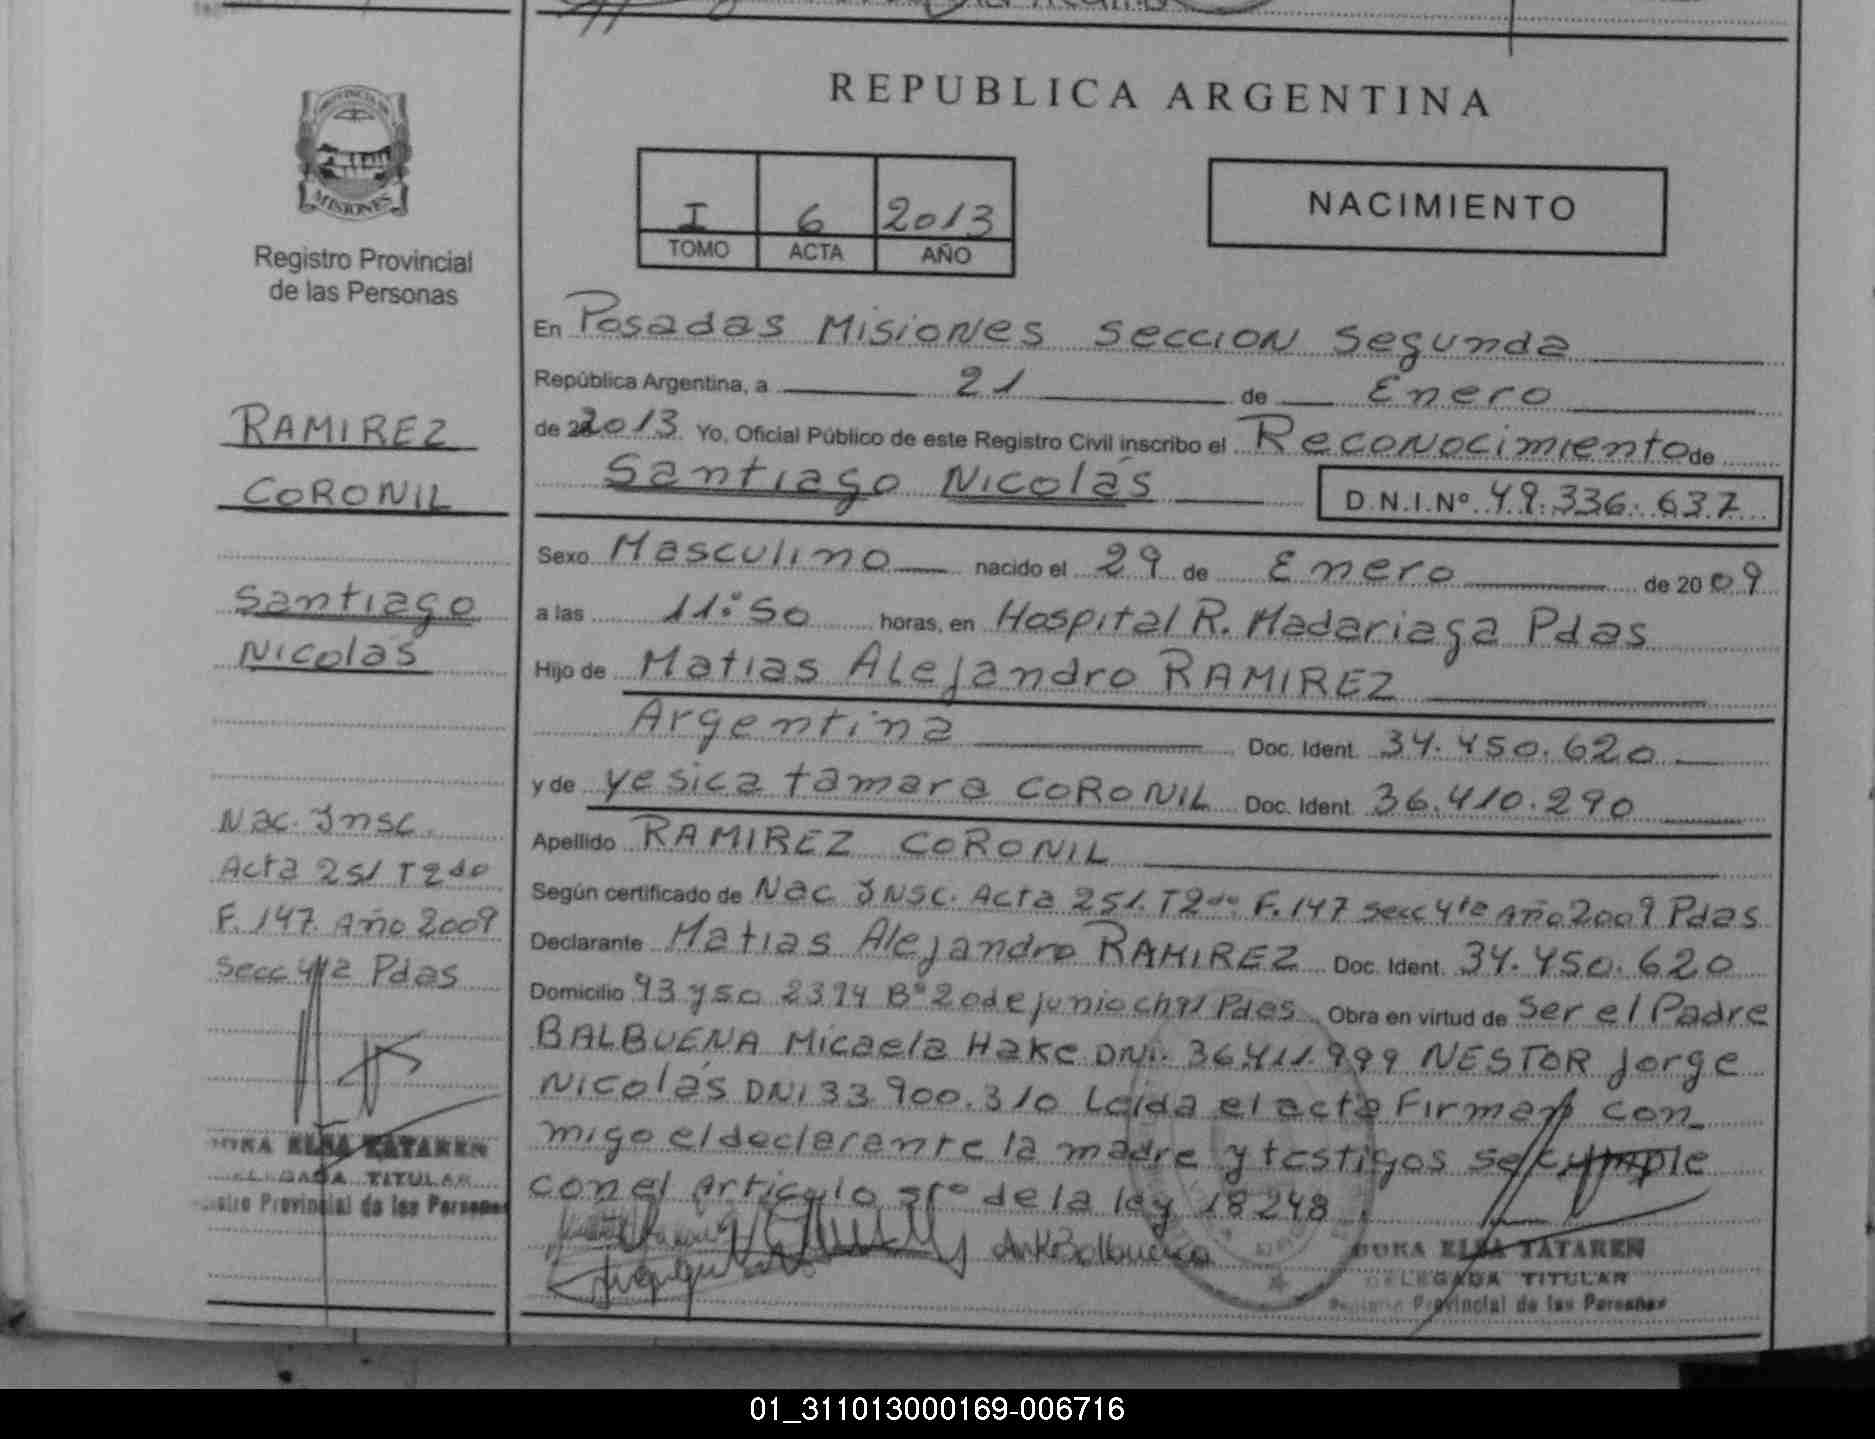 REPUBLICA ARGENTINA
PROVINCIA DE
MISIONES
Registro Provincial
de las Personas
I 6 2013
TOMO ACTA AÑO
NACIMIENTO
En Posadas Misiones Seccion Segunda
República Argentina, a 21 de Enero
de 2013 Yo, Oficial Público de este Registro Civil inscribo el Reconocimiento de
Santiago Nicolás D.N.I.Nº 49.336.637
Sexo Masculino nacido el 29 de Enero de 2009
a las 11:50 horas, en Hospital R. Madariaga Pdas
Hijo de Matias Alejandro RAMIREZ
Argentina Doc. Ident. 34.450.620
y de yesica tamara CORONIL Doc. Ident. 36.410.290
Apellido RAMIREZ CORONIL
Según certificado de Nac INSC. Acta 251. T2do F. 147 secc 4ta Año 2009 Pdas
Declarante Matias Alejandro RAMIREZ Doc. Ident. 34.450.620
Domicilio 93 y 50 2394 Bº 20 de junio ch Pdas Obra en virtud de Ser el Padre
BALBUENA Micaela Hake DNI. 36.411.999 NESTOR Jorge
Nicolás DNI 33.900.310 Leida el acta Firman con
migo el declarante la madre y testigos se cumple
con el Articulo de la ley 18248
Balbuena
DORA ELSA TATAREN
DELEGADA TITULAR
Registro Provincial de las Personas
RAMIREZ
CORONIL
Santiago
Nicolás
Nac. Insc.
Acta 251 T2do
F. 147. Año 2009
Secc 4ta Pdas
DORA ELSA TATAREN
DELEGADA TITULAR
Registro Provincial de las Personas
01_311013000169-006716